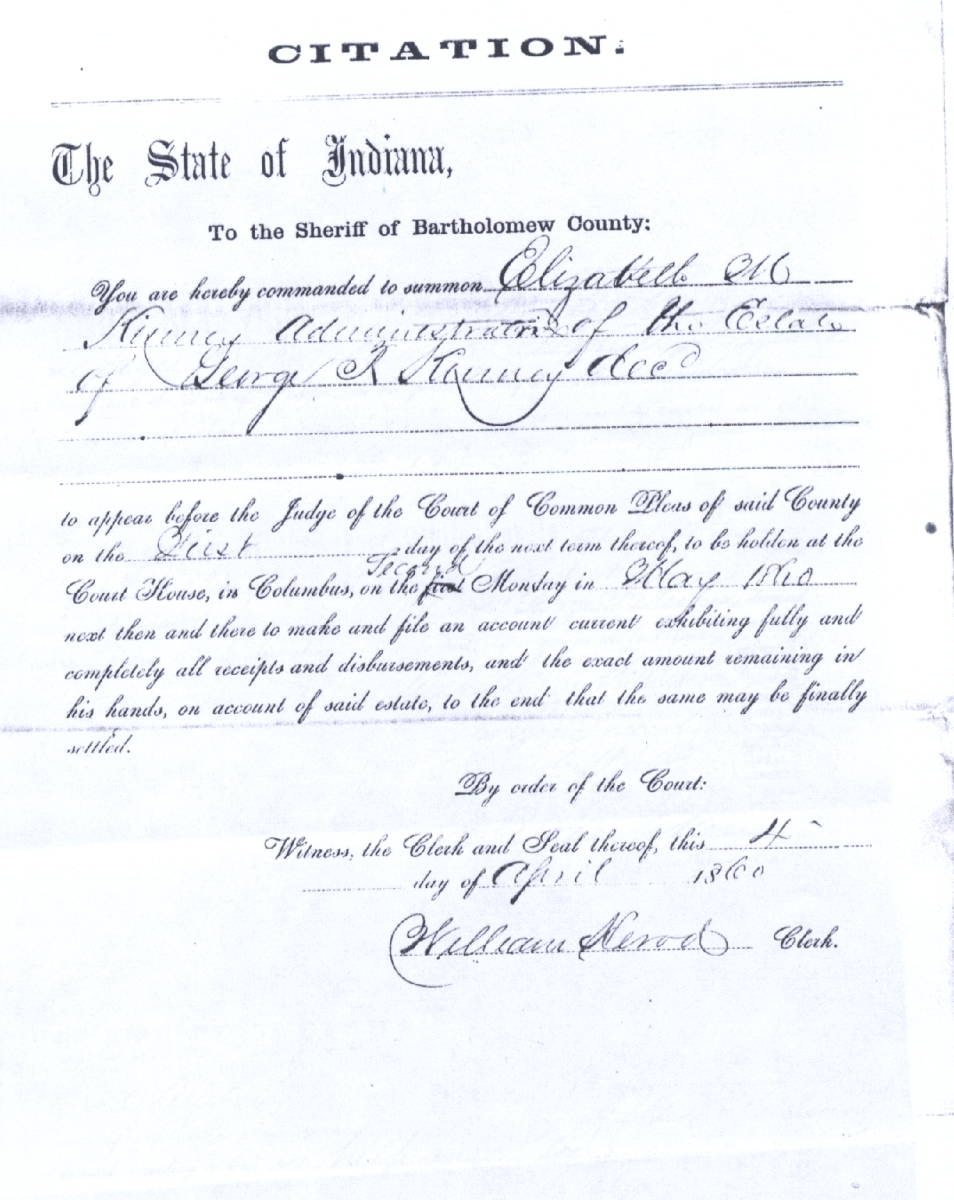 CITATION.
The State of Indiana,
To the Sheriff of Bartholomew County:
You are hereby commanded to summon Elizabeth M
Administratrix of the Estate
of George Decd
to appear before the Judge of the Court of Common Pleas of said County
on the First day of the next term thereof, to be holden at the
Second
Court House, in Columbus, on the first Monday in May 1860
next then and there to make and file an account current exhibiting fully and
completely all receipts and disbursements, and the exact amount remaining in
his hands, on account of said estate, to the end that the same may be finally
settled.
By order of the Court:
Witness, the Clerk and Seal thereof, this 4
day of April 1860
William Herod Clerk.